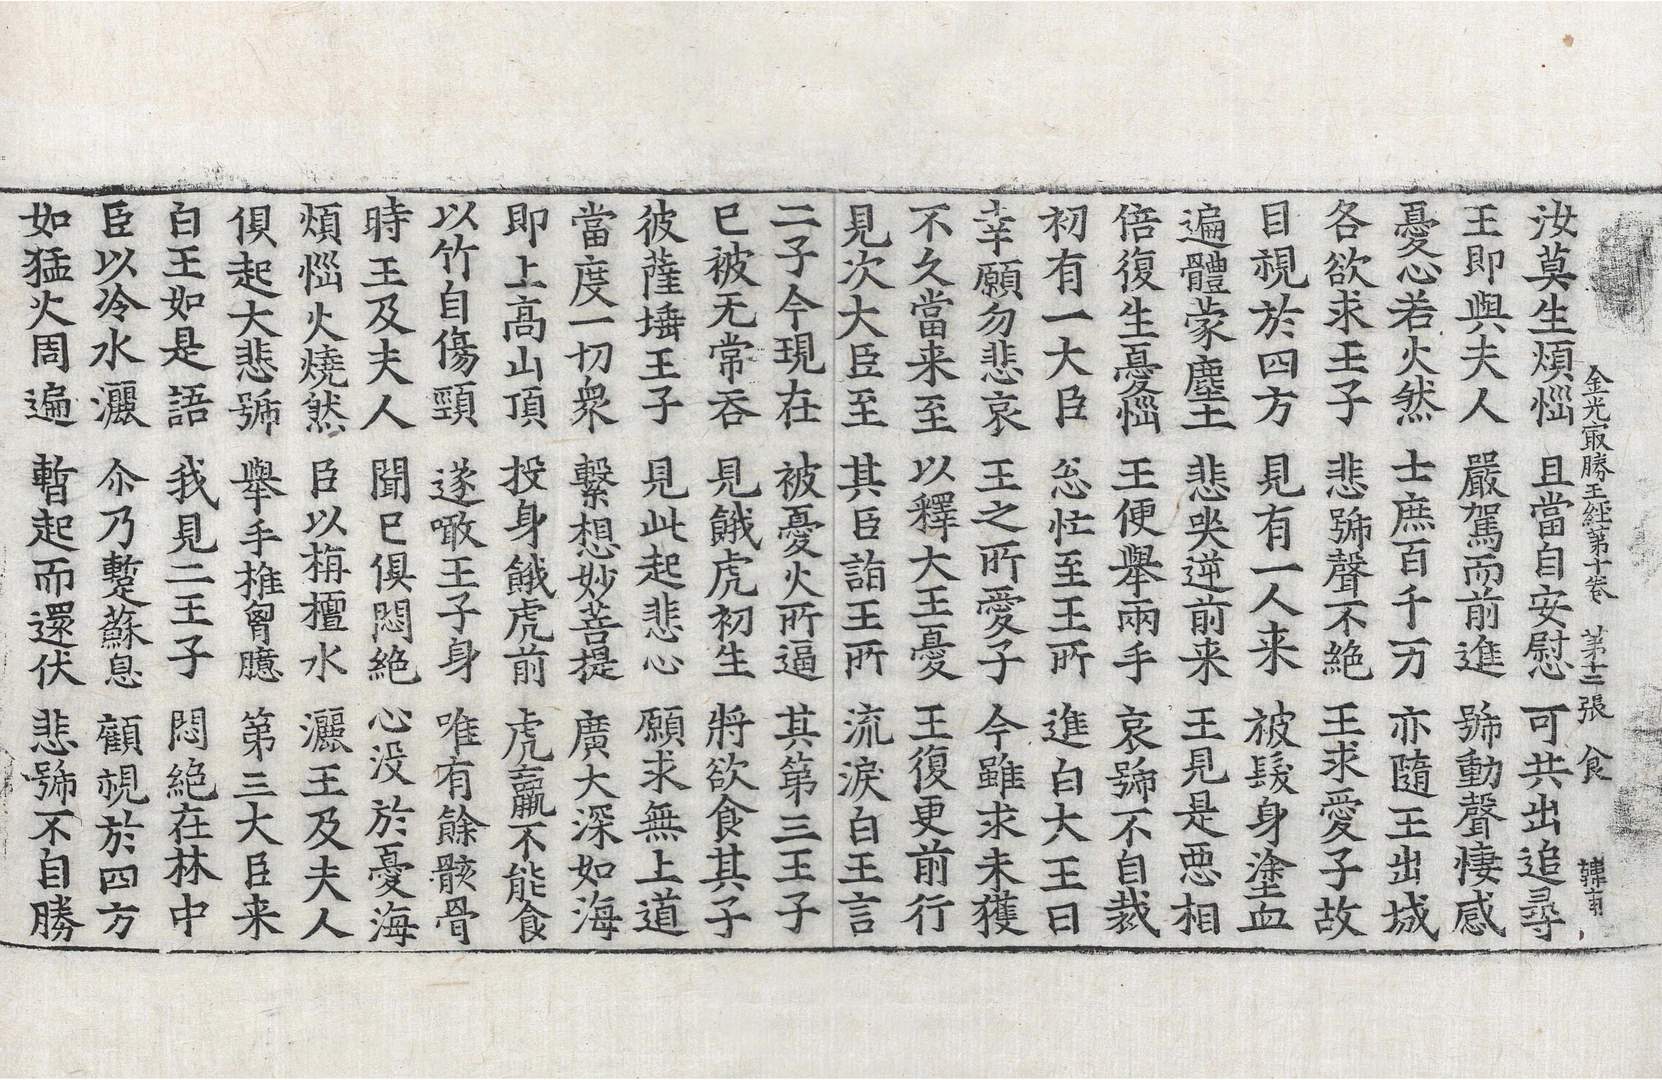 金光㝡勝王經第十卷　第十二張　食
汝莫生煩惱　且當自安慰　可共出追尋
王即與夫人　嚴駕而前進　號動聲悽感
憂心若火然　士庶百千万　亦隨王出城
各欲求王子　悲號聲不絕　王求愛子故
目視於四方　見有一人来　被髮身塗血
遍體蒙塵土　悲哭逆前来　王見是惡相
倍復生憂惱　王便舉兩手　哀號不自裁
初有一大臣　怱忙至王所　進白大王曰
幸願勿悲哀　王之所愛子　今雖求未獲
不久當来至　以釋大王憂　王復更前行
見次大臣至　其臣詣王所　流淚白王言
二子今現在　被憂火所逼　其第三王子
已被无常吞　見餓虎初生　將欲食其子
彼薩埵王子　見此起悲心　願求無上道
當度一切衆　繫想妙菩提　廣大深如海
即上高山頂　投身餓虎前　虎羸不能食
以竹自傷頸　遂噉王子身　唯有餘骸骨
時王及夫人　聞已俱悶絕　心没於憂海
煩惱火燒然　臣以栴檀水　灑王及夫人
俱起大悲號　舉手椎胷臆　第三大臣来
白王如是語　我見二王子　悶絕在林中
臣以冷水灑　尒乃蹔蘇息　顧視於四方
如猛火周遍　暫起而還伏　悲號不自勝